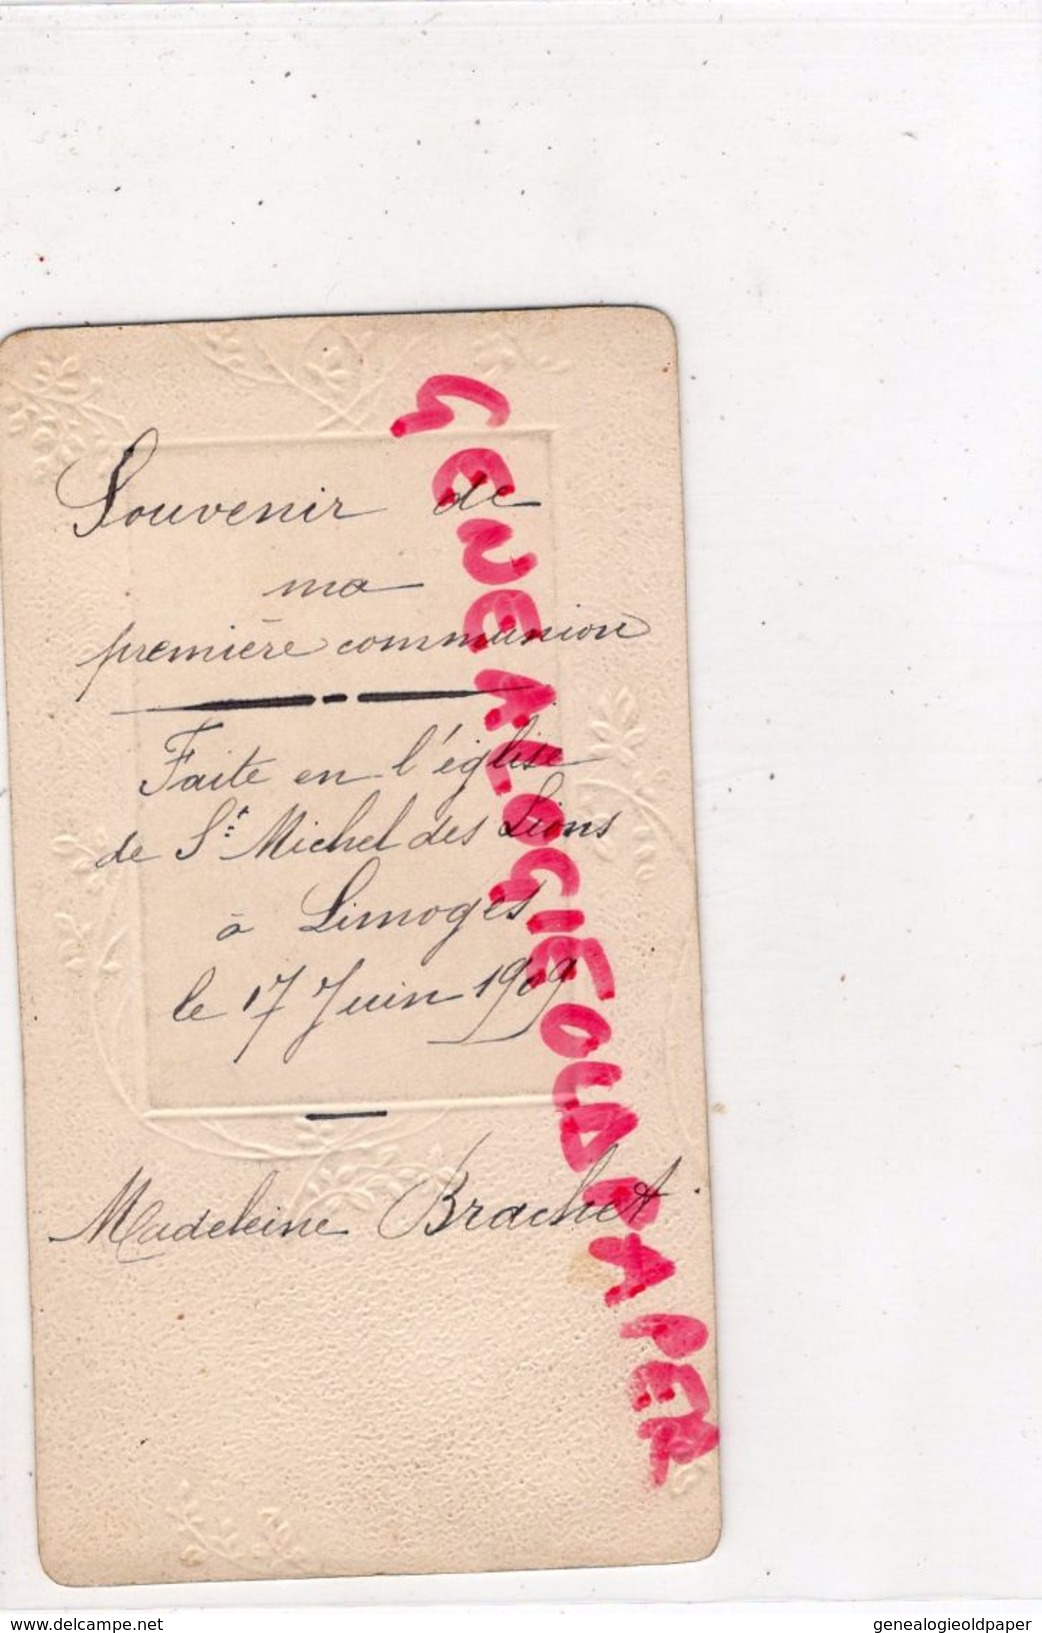 Souvenir de
ma
première communion
Faite en l'église
de St Michel des Lions
à Limoges
le 17 Juin 1909
Madeleine Brachet
GENEALOGIEOLDPAPER
www.delcampe.net
genealogieoldpaper